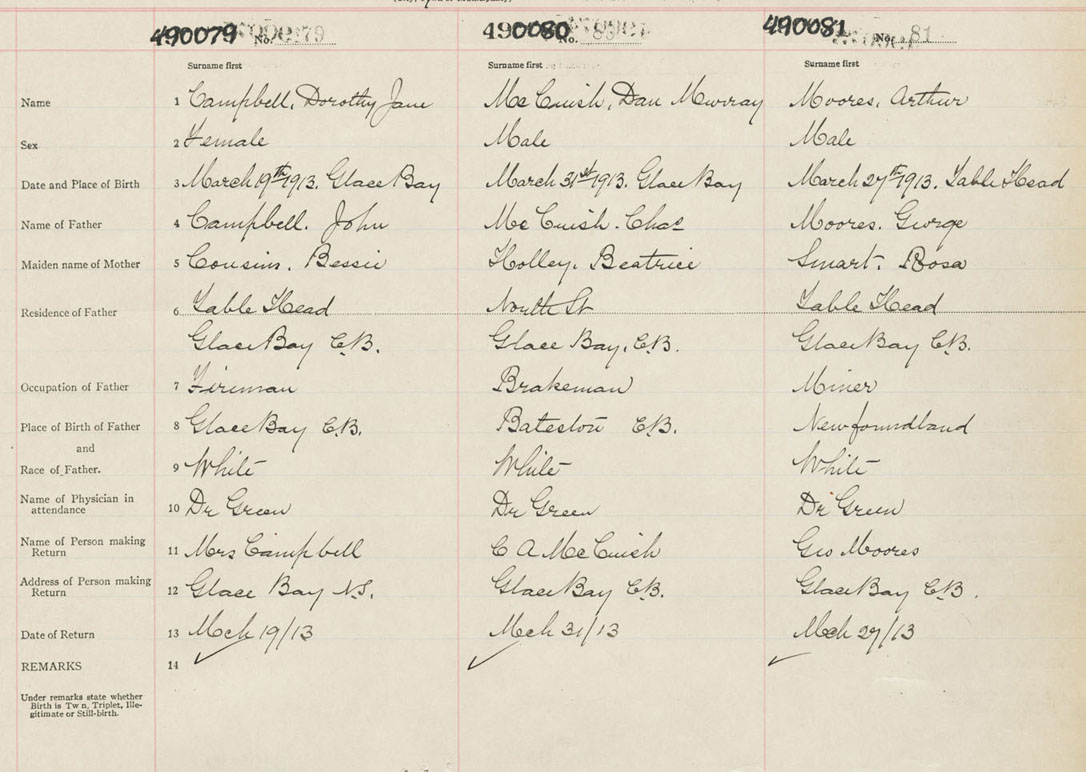 490079 No. 79 490080 No. 490081 No. 81
Surname first Surname first Surname first
Name 1 Campbell, Dorothy Jane Mc Cuish, Dan Murray Moores, Arthur
Sex 2 Female Male Male
Date and Place of Birth 3 March 19th 1913. Glace Bay March 31st 1913. Glace Bay March 27th 1913. Table Head
Name of Father 4 Campbell. John Mc Cuish. Chas Moores. George
Maiden name of Mother 5 Cousins. Bessie Holley. Beatrice Smart. Rosa
Residence of Father 6 Table Head North St Table Head
Glace Bay C.B. Glace Bay, C.B. Glace Bay C.B.
Occupation of Father 7 Fireman Brakeman Miner
Place of Birth of Father 8 Glace Bay C.B. Bateston C.B. Newfoundland
and
Race of Father. 9 White White White
Name of Physician in attendance 10 Dr Green Dr Green Dr Green
Name of Person making Return 11 Mrs Campbell C A Mc Cuish Geo Moores
Address of Person making Return 12 Glace Bay N.S. Glace Bay C.B. Glace Bay C.B.
Date of Return 13 Mch 19/13 Mch 31/13 Mch 27/13
REMARKS 14
Under remarks state whether
Birth is Tw n, Triplet, Ille-
gitimate or Still-birth.